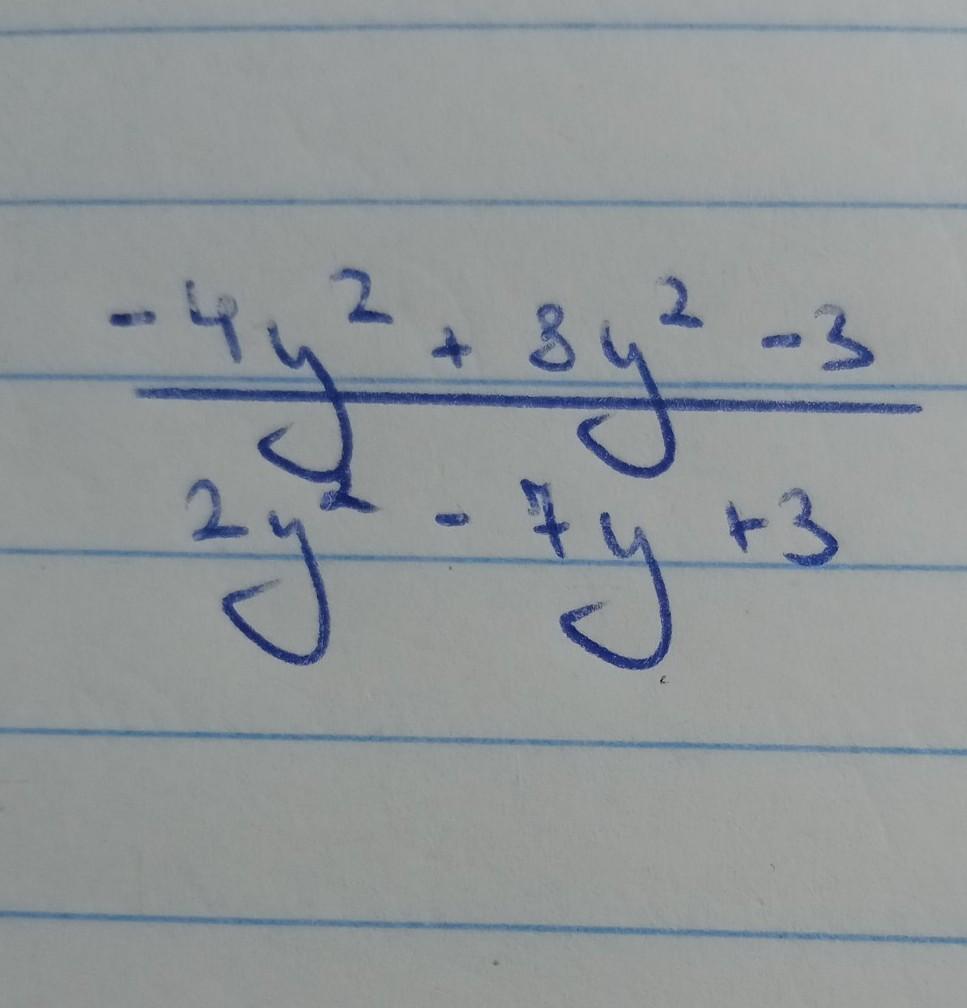 -4y² + 8y² -3
2y² - 7y +3